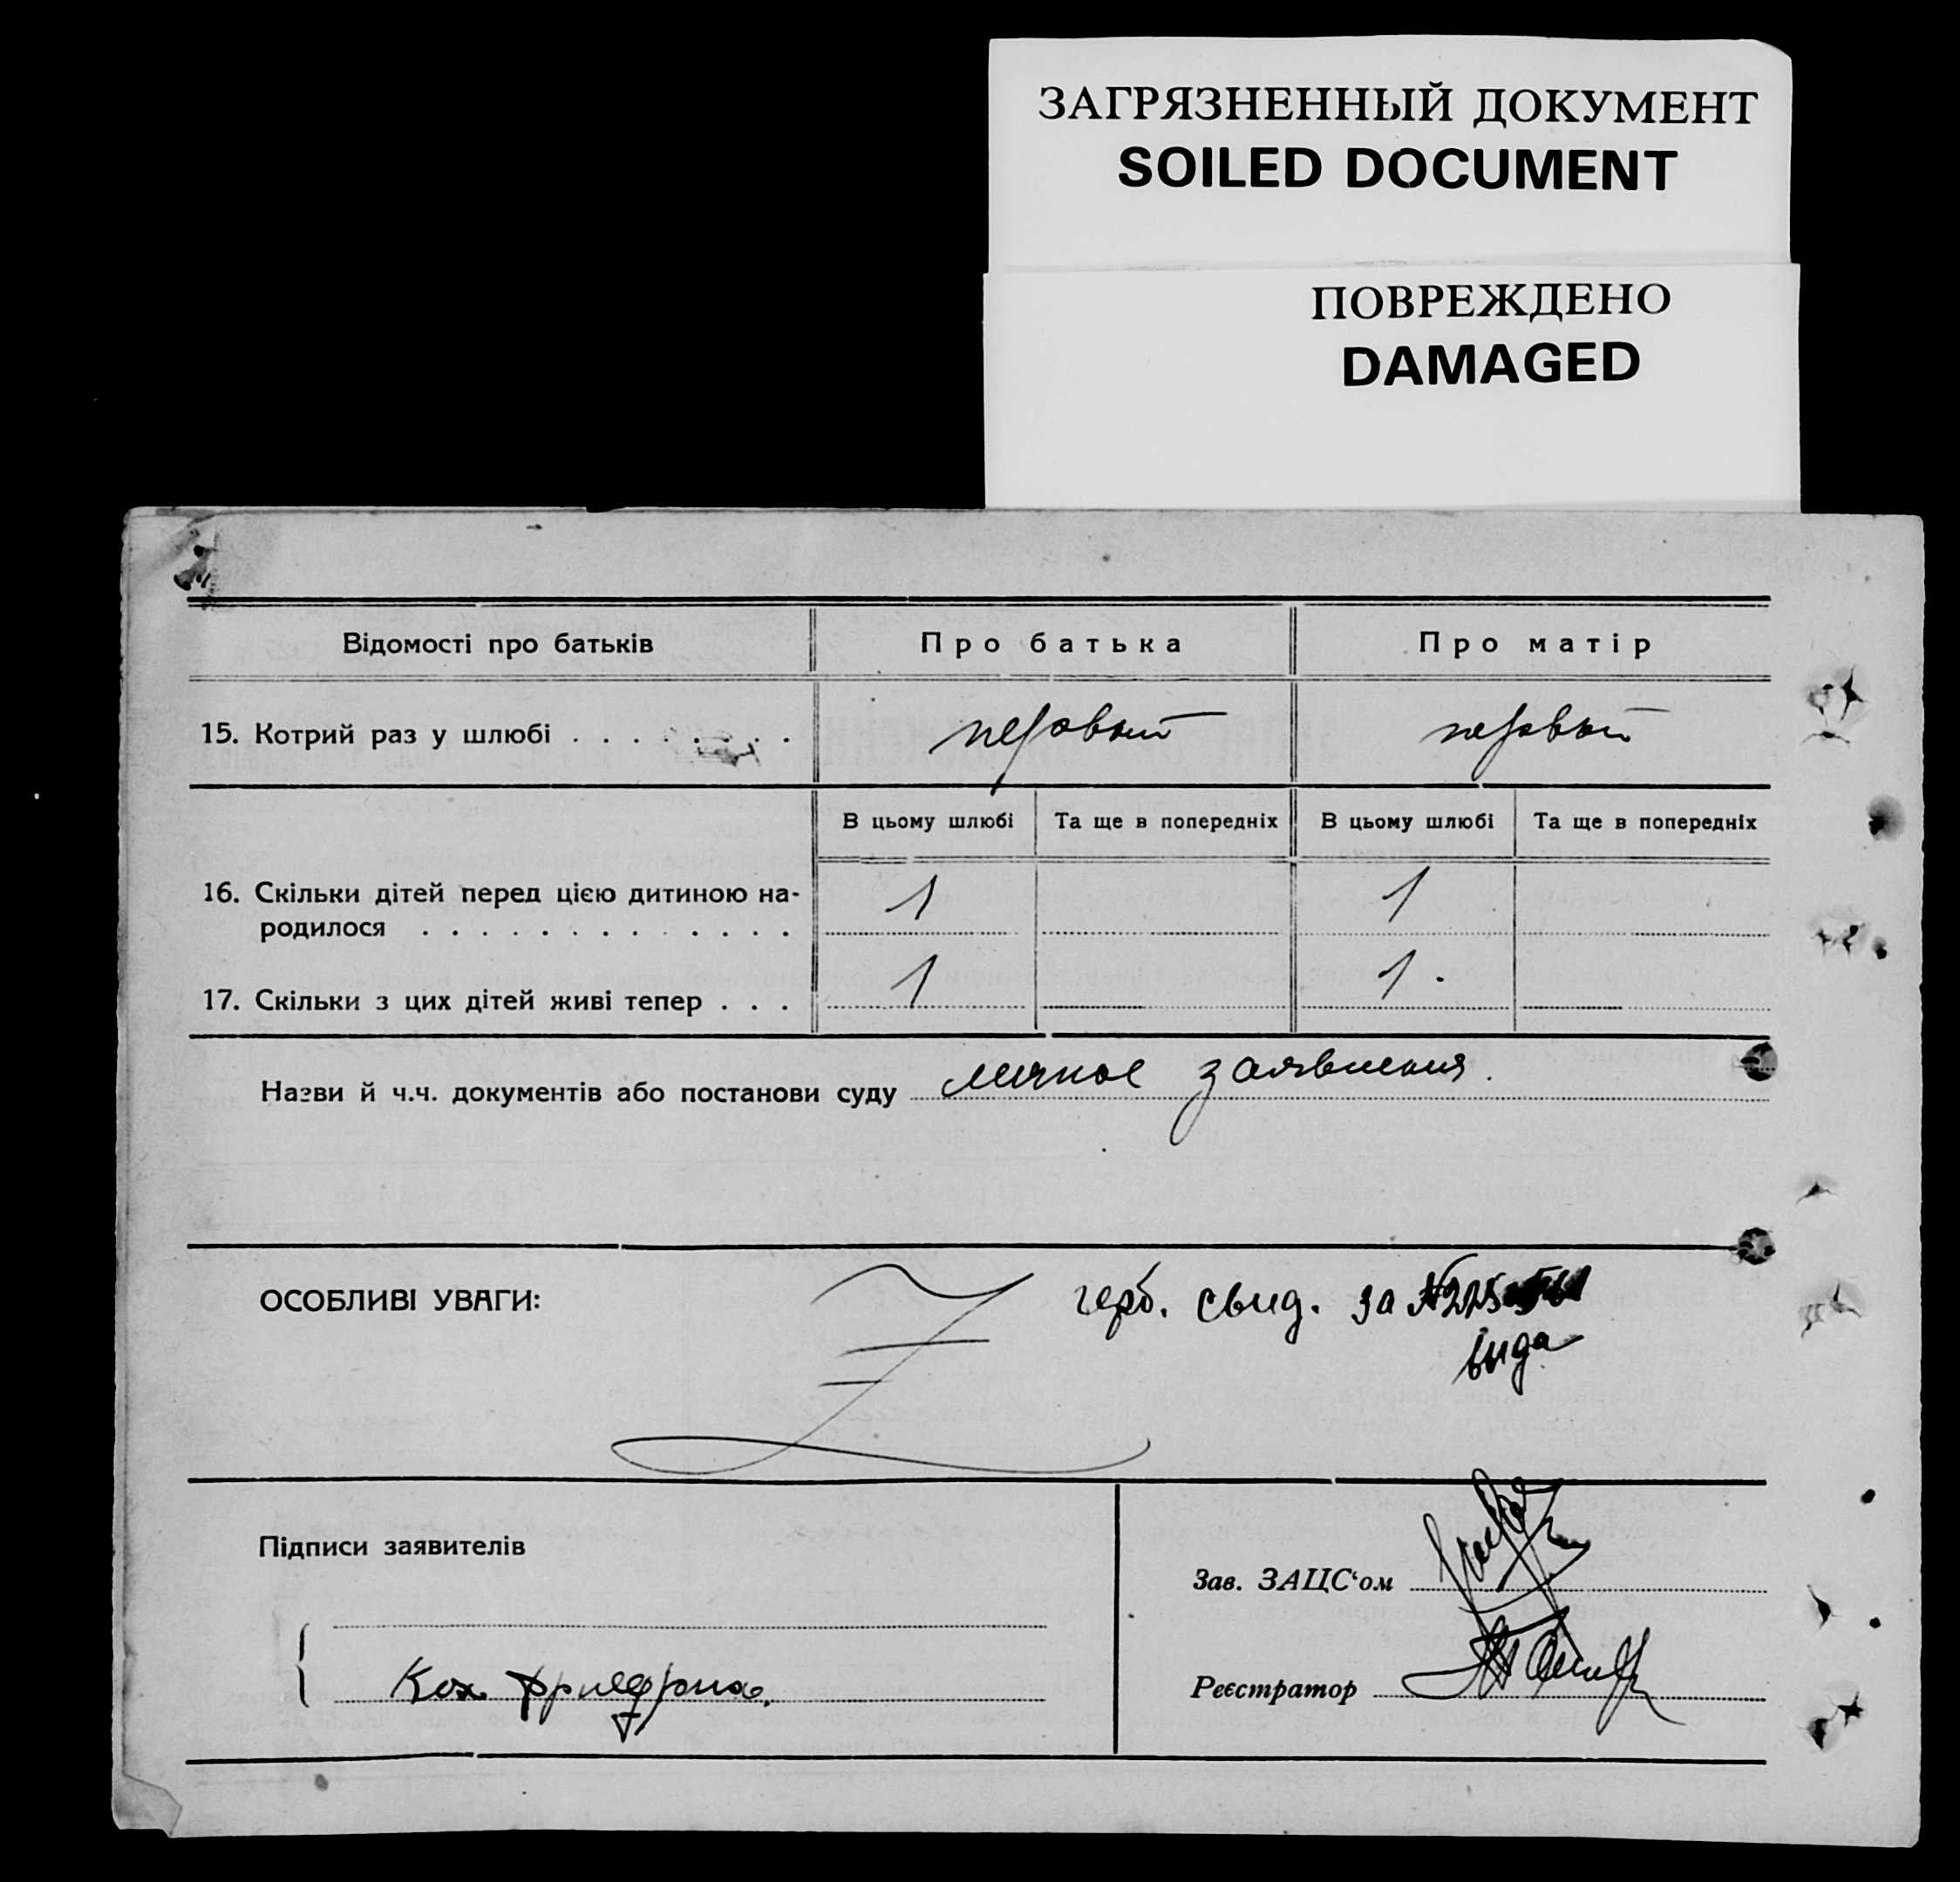 ЗАГРЯЗНЕННЫЙ ДОКУМЕНТ
SOILED DOCUMENT
ПОВРЕЖДЕНО
DAMAGED
Відомості про батьків Про батька Про матір
15. Котрий раз у шлюбі . . . . . . . первый первый
В цьому шлюбі Та ще в попередніх В цьому шлюбі Та ще в попередніх
16. Скільки дітей перед цією дитиною на- 1 1
родилося . . . . . . . . . . . . .
17. Скільки з цих дітей живі тепер . . . 1 1.
Назви й ч.ч. документів або постанови суду личное заявления.
ОСОБЛИВІ УВАГИ: герб. свид. за №
вида
Підписи заявителів
Зав. ЗАЦС‘ом
Кох Фридрих.
Реєстратор